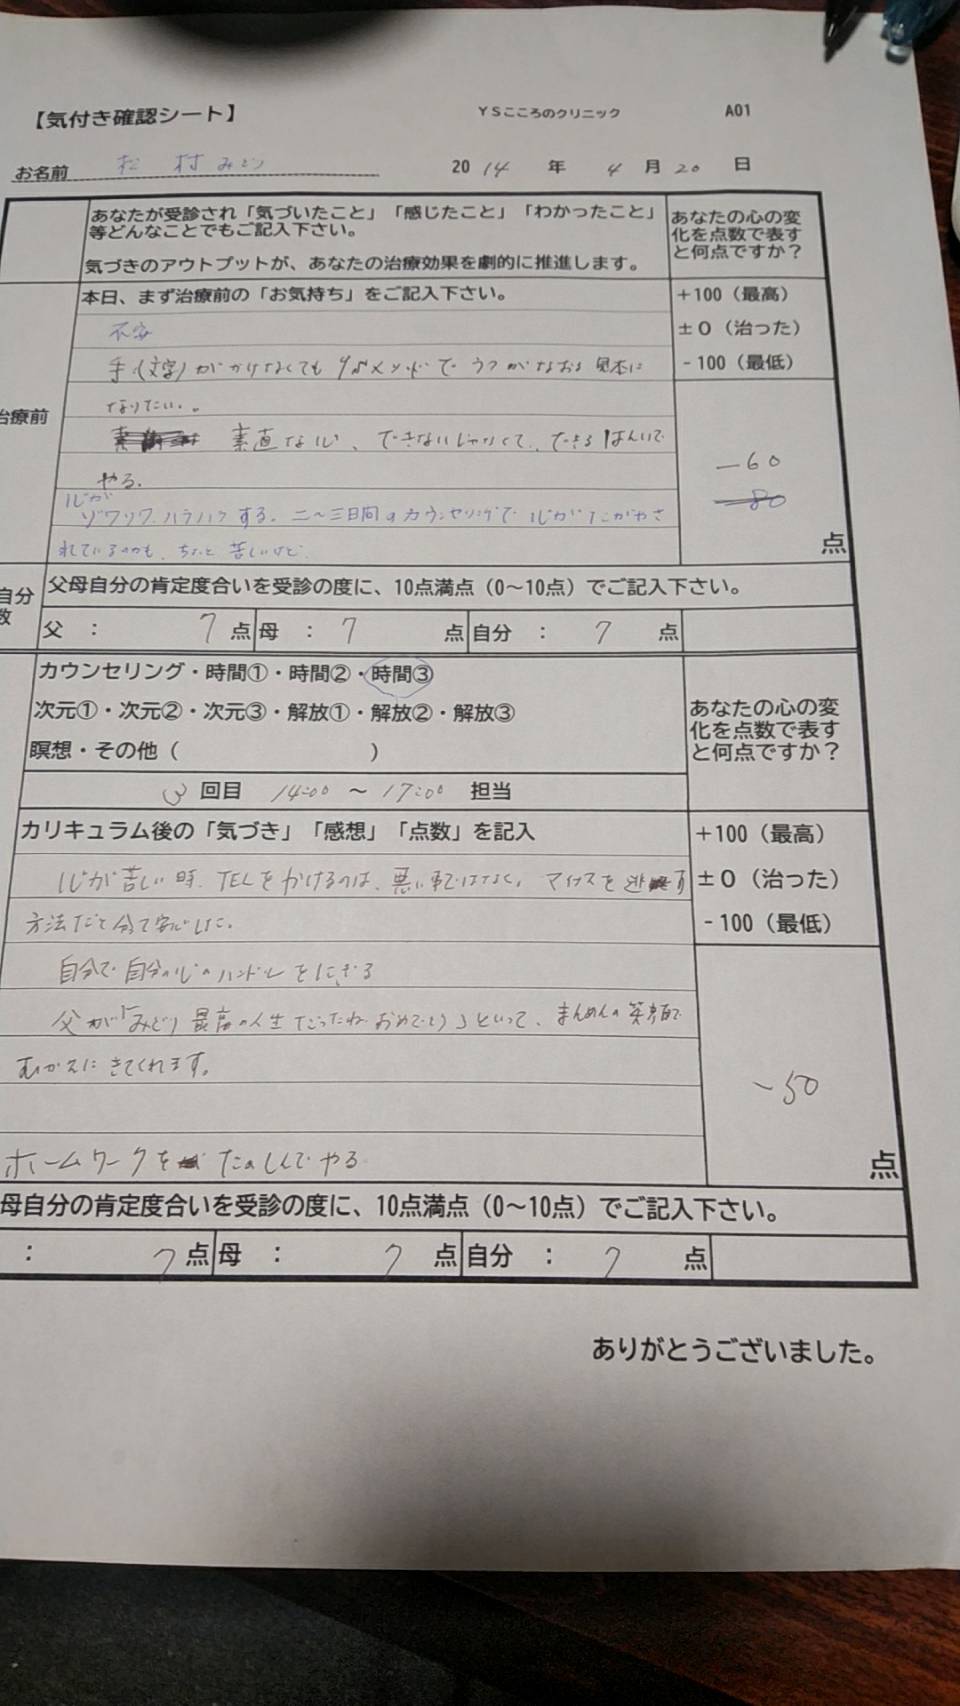 【気付き確認シート】 YSこころのクリニック A01
お名前 松村みどり 2014年4月20日
あなたが受診され「気づいたこと」「感じたこと」「わかったこと」
等どんなことでもご記入下さい。
気づきのアウトプットが、あなたの治療効果を劇的に推進します。
あなたの心の変
化を点数で表す
と何点ですか?
本日、まず治療前の「お気持ち」をご記入下さい。
+100(最高)
±0(治った)
-100(最低)
治療前
不安
手(文字)がかけなくてもYSメソッドでうつがなおる見本に
なりたい。
素直な心、できないじゃなくて、できるはんいで
やる。
心が
ゾワゾワ、ハラハラする。二〜三日間のカウンセリングで心がたがやさ
れているのかも、ちょっと苦しいけど。
-60
-80
点
自分
数
父母自分の肯定度合いを受診の度に、10点満点(0〜10点)でご記入下さい。
父 : 7 点 母 : 7 点 自分 : 7 点
カウンセリング・時間①・時間②・時間③
次元①・次元②・次元③・解放①・解放②・解放③
瞑想・その他( )
あなたの心の変
化を点数で表す
と何点ですか?
3 回目 14:00 〜 17:00 担当
カリキュラム後の「気づき」「感想」「点数」を記入
+100(最高)
±0(治った)
-100(最低)
心が苦しい時、TELをかけるのは、悪い事ではなく、マイナスを逃す
方法だと分って安心した。
自分で自分の心のハンドルをにぎる
父が「みどり最高の人生だったねおめでとう」といって、まんめんの笑顔で
むかえにきてくれます。
-50
ホームワークをたのしんでやる
点
母自分の肯定度合いを受診の度に、10点満点(0〜10点)でご記入下さい。
: 7 点 母 : 7 点 自分 : 7 点
ありがとうございました。